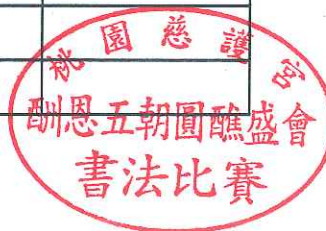 桃園慈護宮
酬恩五朝圓醮盛會
書法比賽